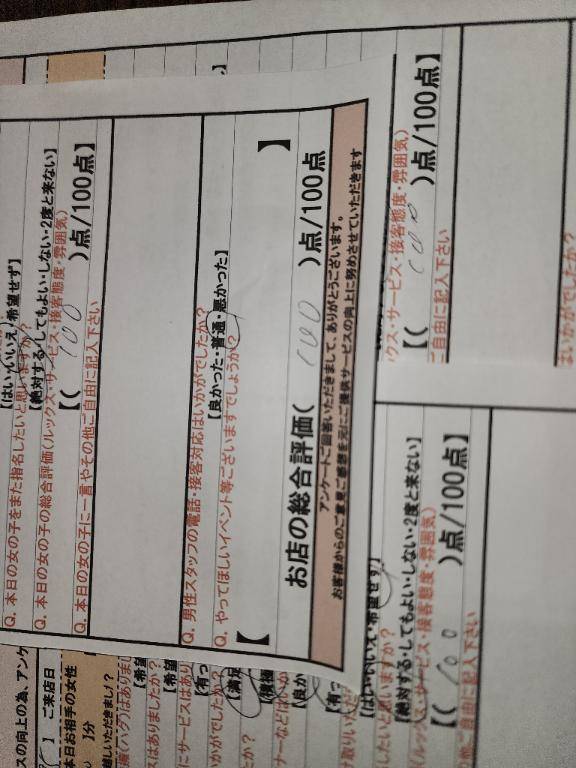 【はい・いいえ・希望せず】
Q. 本日の女の子をまた指名したいと思いますか?
【絶対する・してもよい・しない・2度と来ない】
Q. 本日の女の子の総合評価(ルックス・サービス・接客態度・雰囲気)
【( 100 )点/100点】
Q. 本日の女の子に一言やその他ご自由に記入下さい
Q. 男性スタッフの電話・接客対応はいかがでしたか?
【良かった・普通・悪かった】
Q. やってほしいイベント等ございますでしょうか?
【 】
お店の総合評価( 100 )点/100点
アンケートご回答いただきまして、ありがとうございます。
お客様からのご意見ご感想を元にご提供サービスの向上に努めさせていただきます
クス・サービス・接客態度・雰囲気)
【( 100 )点/100点
ご自由に記入下さい
はいかがでしたか?
スの向上の為、アンケ
】 ご来店日
本日お相手の女性
】分
【はい・いいえ・希望せず】
したいと思いますか?
【絶対する・してもよい・しない・2度と来ない】
(ルックス・サービス・接客態度・雰囲気)
【( 100 )点/100点】
他ご自由に記入下さい